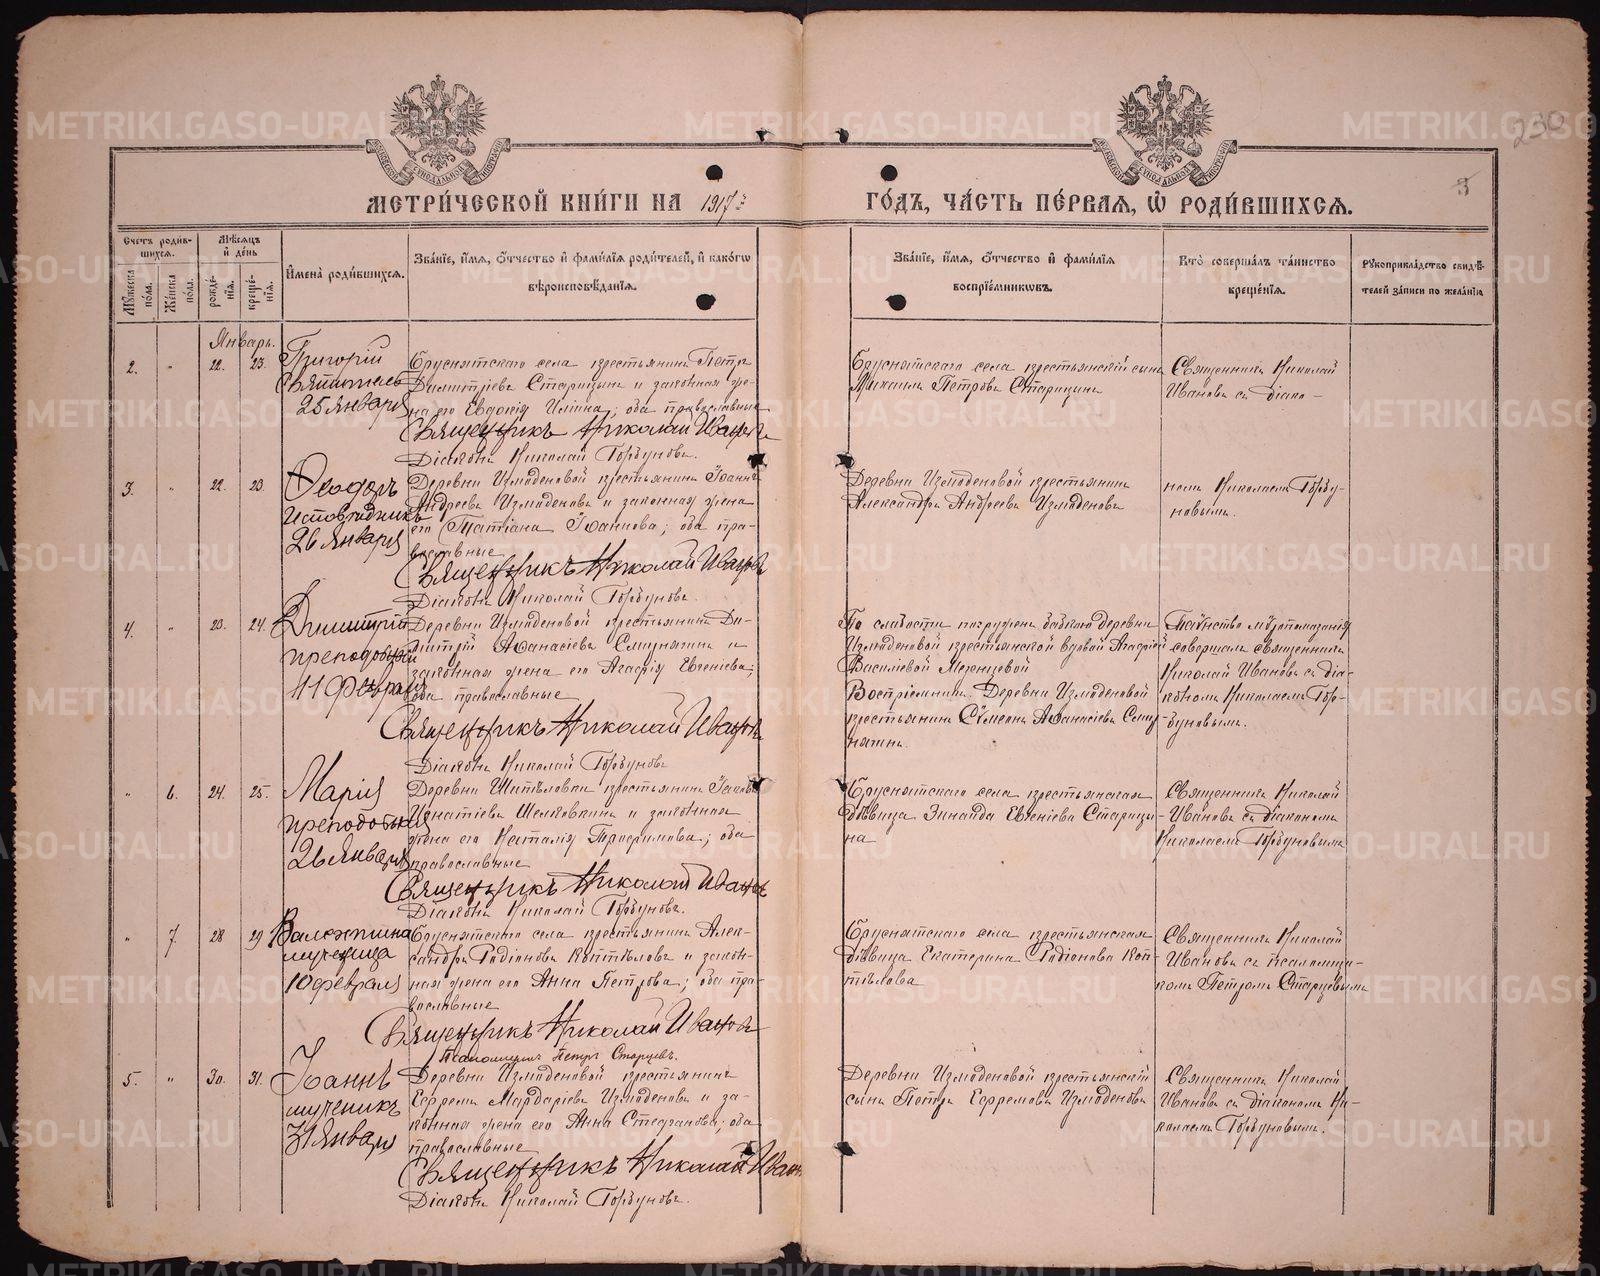 230
5
МЕТРИ́ЧЕСКОЙ КНИ́ГИ НА 1917 ГО́ДЪ, ЧА́СТЬ ПЕ́РВАЯ, Ѡ РОДИ́ВШИХСЯ.
Счетъ роди́вшихся.
Му́жеска по́ла.
Же́нска по́ла.
Мѣ́сяцъ и҆ де́нь
рожде́нїя.
креще́нїя.
И҆мена̀ роди́вшихся.
Зва́нїе, и҆́мя, ѻ҆́тчество и҆ фами́лїя роди́телей, и҆ како́гѡ вѣроисповѣ́данїя.
Зва́нїе, и҆́мя, ѻ҆́тчество и҆ фами́лїя воспрїе́мникѡвъ.
Кто̀ соверша́лъ та́инство креще́нїя.
Рꙋкоприкла́дство свидѣ́телей за́писи по жела́нїю
Январь.
2. " 22. 23.
Григорій
Святитель
25 Января
Бруснятскаго села крестьянинъ Петръ
Димитріевъ Старицинъ и законная же-
на его Евдокія Иліина; оба православные
Священникъ Николай Ивановъ
Діаконъ Николай Горбуновъ.
Бруснятскаго села крестьянскій сынъ
Михаилъ Петровъ Старицинъ
Священникъ Николай
Ивановъ съ діако-
3. " 22. 23.
Ѳеодоръ
Исповѣдникъ
26 Января
Деревни Измоденовой крестьянинъ Іоаннъ
Андреевъ Измоденовъ и законная жена
его Татіана Іоаннова; оба пра-
вославные
Священникъ Николай Ивановъ
Діаконъ Николай Горбуновъ.
Деревни Измоденовой крестьянинъ
Александръ Андреевъ Измоденовъ
номъ Николаемъ Горбу-
новымъ.
4. " 23. 24.
Димитрій
преподобный
11 Февраля
Деревни Измоденовой крестьянинъ Ди-
митрій Аѳанасіевъ
законная жена его Агафія Евгеніева;
оба православные
Священникъ Николай Ивановъ
Діаконъ Николай Горбуновъ
По слабости погруженъ бабкою деревни
Измоденовой крестьянской вдовой Агафіей
Василіевой Мезенцевой
Воспріемникъ: Деревни Измоденовой
крестьянинъ Сѵмеонъ Аѳанасіевъ
Таинство мѵропомазанія
совершалъ священникъ
Николай Ивановъ съ діа-
кономъ Николаемъ Гор-
буновымъ.
" 6. 24. 25.
Марія
преподобная
26 Января
Деревни крестьянинъ
Игнатіевъ Шелковкинъ и законная
жена его Наталія Трофимова; оба
православные
Священникъ Николай Ивановъ
Діаконъ Николай Горбуновъ.
Бруснятскаго села крестьянская
дѣвица Зинаида Евгеніева Старици-
на
Священникъ Николай
Ивановъ съ діакономъ
Николаемъ Горбуновымъ
" 7. 28 29
Валентина
мученица
10 февраля
Бруснятскаго села крестьянинъ Алек-
сандръ Родіоновъ Коптѣловъ и закон-
ная жена его Анна Петрова; оба пра-
вославные
Священникъ Николай Ивановъ
Псаломщикъ Петръ Старцевъ.
Бруснятскаго села крестьянская
дѣвица Екатерина Родіонова Коп-
тѣлова
Священникъ Николай
Ивановъ съ псаломщи-
комъ Петромъ Старцевымъ
5. " 30. 31.
Іоаннъ
мученикъ
31 Января
Деревни Измоденовой крестьянинъ
Ефремъ Мардаріевъ Измоденовъ и за-
конная жена его Анна Стефанова; оба
православные
Священникъ Николай Ивановъ
Діаконъ Николай Горбуновъ.
Деревни Измоденовой крестьянскій
сынъ Петръ Ефремовъ Измоденовъ
Священникъ Николай
Ивановъ съ діакономъ Ни-
колаемъ Горбуновымъ.
METRIKI.GASO-URAL.RU